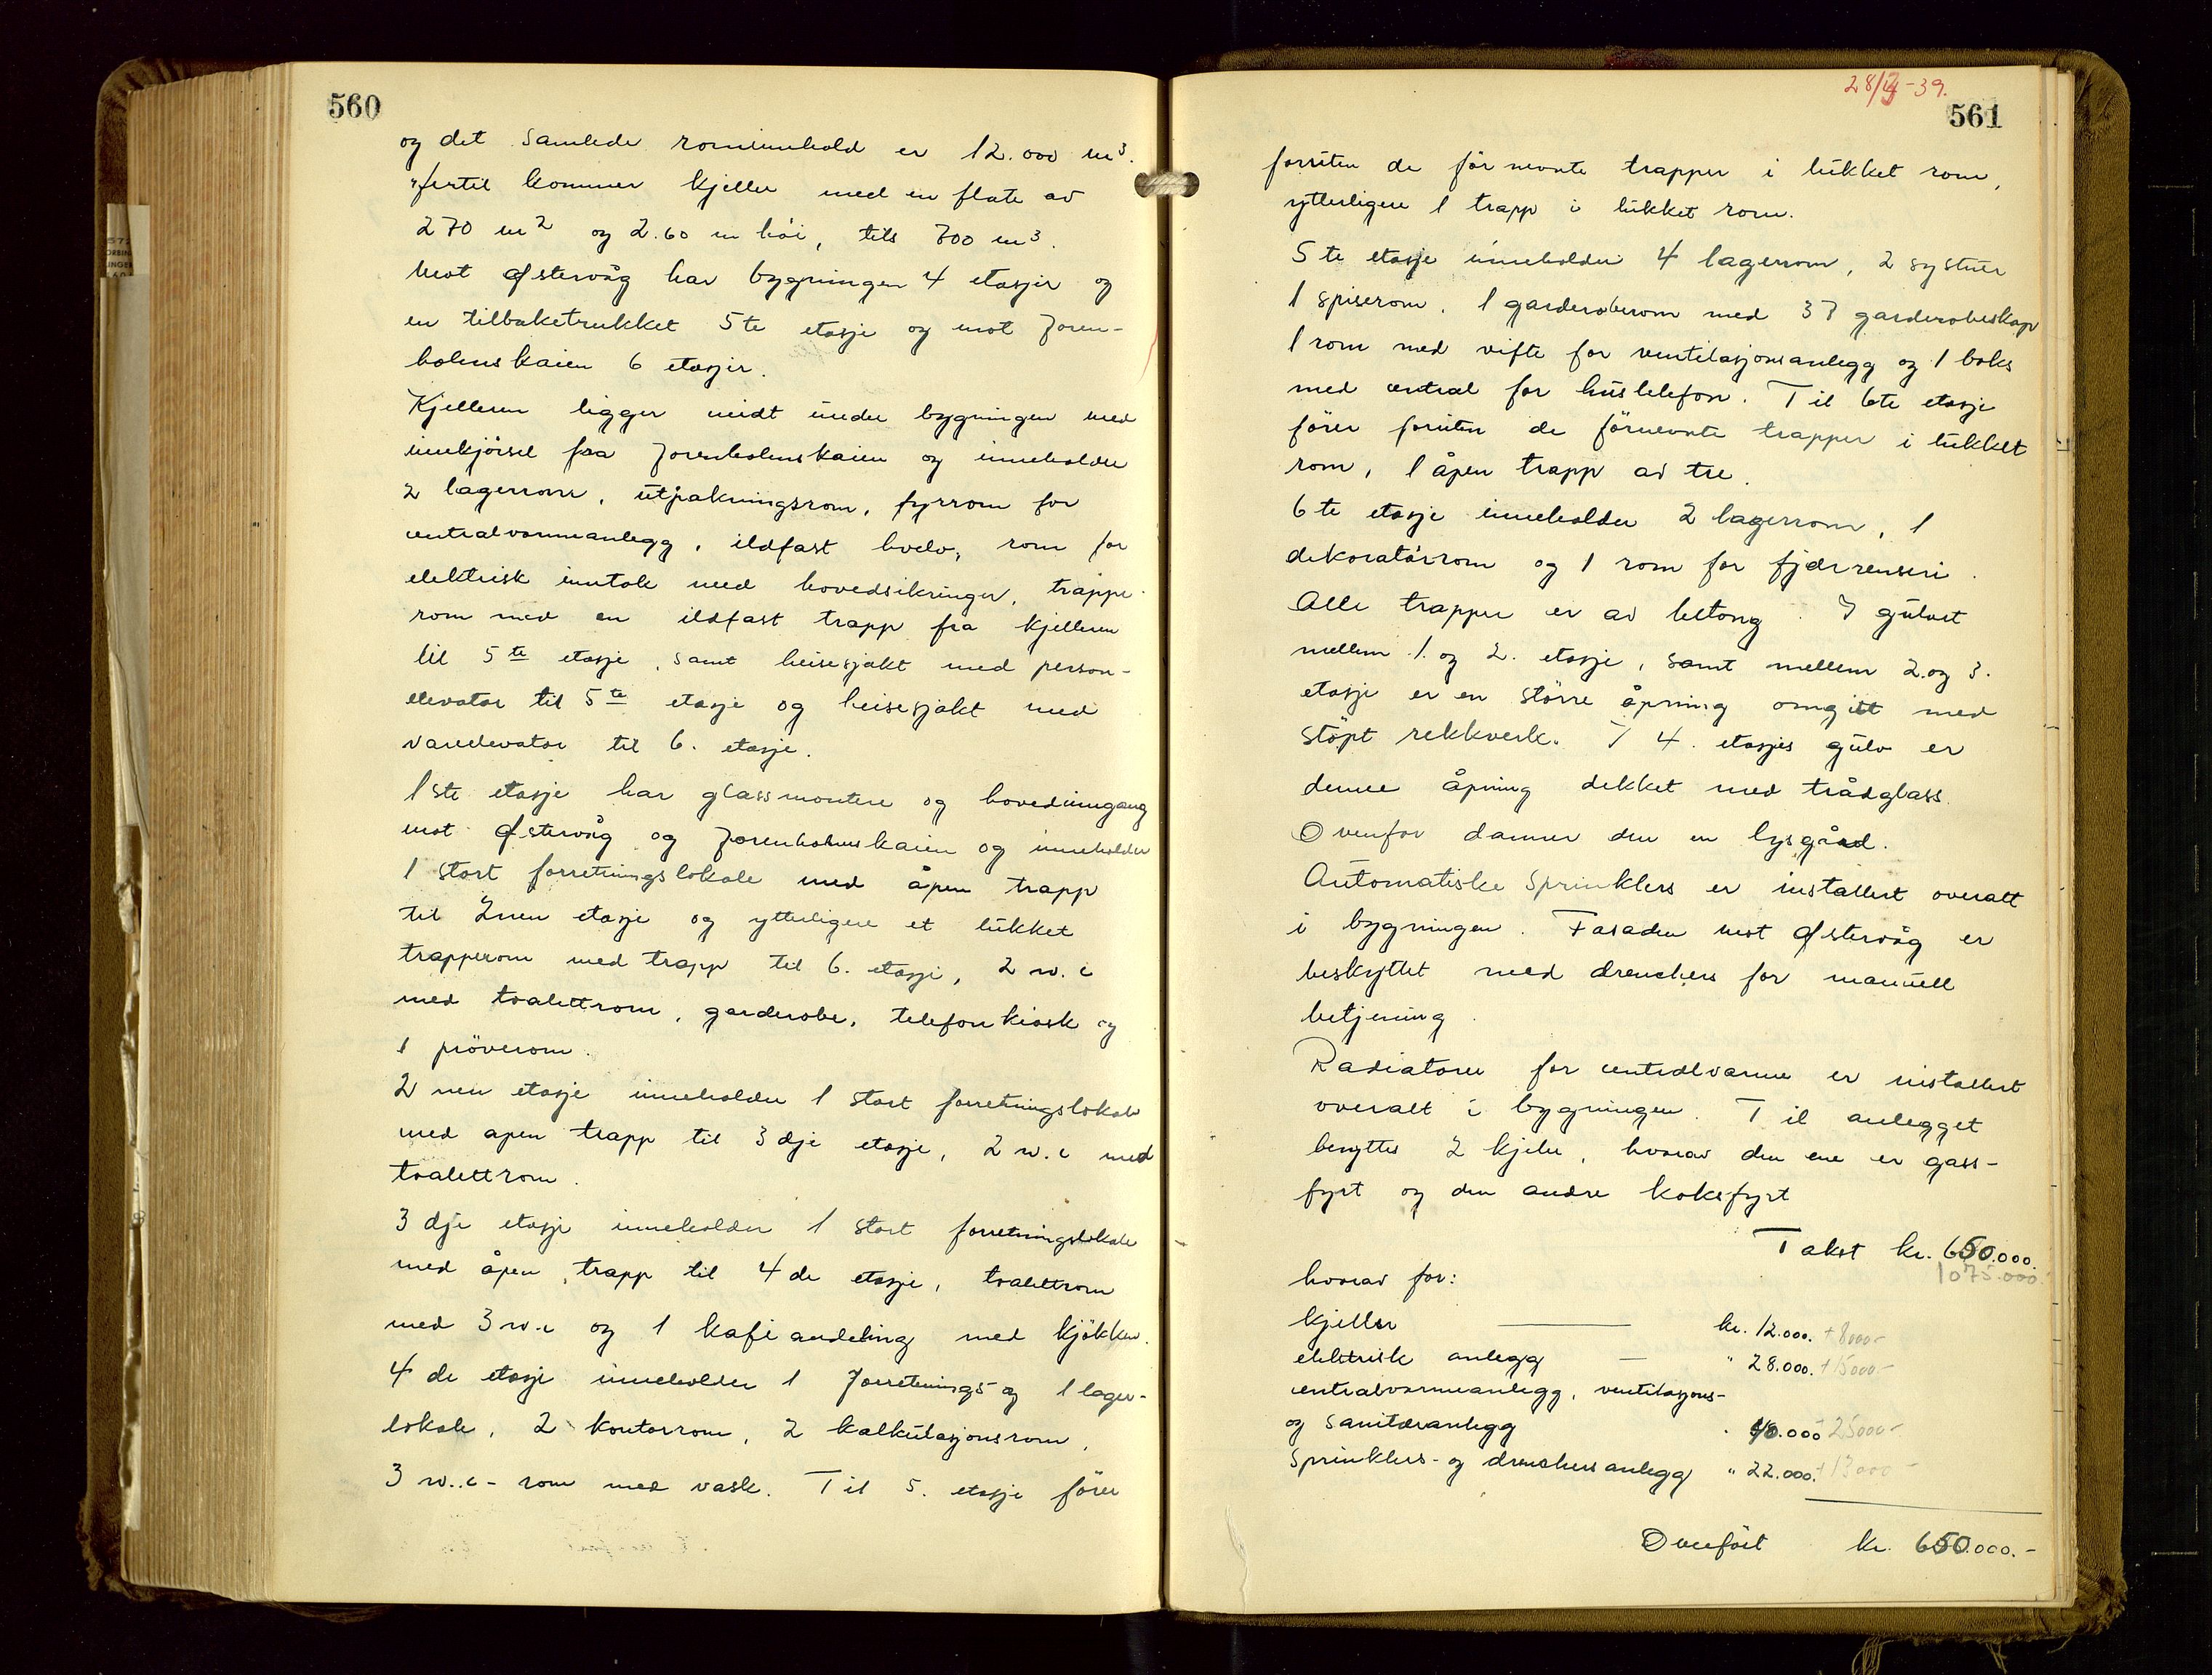 560
og det samlede rominnhold er 12.000 m³.
hertil kommer kjeller med en flate av
270 m² og 2.60 m høi, tils 700 m³.
Mot Østervåg har bygningen 4 etasjer og
en tilbaketrukket 5te etasje og mot Joren-
holmskaien 6 etasjer.
Kjelleren ligger midt under bygningen med
innkjörsel fra Jorenholmskaien og inneholder
2 lagerrom, utpakningsrom, fyrrom for
centralvarmeanlegg, ildfast hvelv, rom for
elektrisk inntak med hovedsikringer, trappe-
rom med en ildfast trapp fra kjelleren
til 5te etasje, samt heisesjakt med person-
elevator til 5te etasje og heisesjakt med
vareelevator til 6. etasje.
1ste etasje har glassmontere og hovedinngang
mot Østervåg og Jorenholmskaien og inneholder
1 stort forretningslokale med åpen trapp
til 2nen etasje og ytterligere et lukket
trapperom med trapp til 6. etasje, 2 w.c
med toalettrom, garderobe, telefonkiosk og
1 pröverom.
2nen etasje inneholder 1 stort forretningslokale
med apen trapp til 3dje etasje, 2 w.c med
toalettrom.
3dje etasje inneholder 1 stort forretningslokale
med åpen trapp til 4de etasje, toalettrom
med 3 w.c og 1 kafeavdeling med kjökken.
4de etasje inneholder 1 forretnings- og 1 lager-
lokale, 2 kontorrom, 2 kalkulasjonsrom,
3 w.c-rom med vask. Til 5. etasje förer
28/4-39.
561
foruten de för nevnte trapper i lukket rom,
ytterligere 1 trapp i lukket rom.
5te etasje inneholder 4 lagerrom, 2 systuer
1 spiserom, 1 garderoberom med 37 garderobeskap
1 rom med vifte for ventilasjonsanlegg og 1 boks
med central for hustelefon. Til 6te etasje
förer foruten de förnevnte trapper i lukket
rom, 1 åpen trapp av tre.
6te etasje inneholder 2 lagerrom, 1
dekoratörrom og 1 rom for fjærrenseri.
Alle trapper er av betong. I gulvet
mellem 1. og 2. etasje, samt mellem 2. og 3.
etasje er en större åpning omgitt med
stöpt rekkverk. I 4. etasjes gulv er
denne åpning dekket med trådglass.
Ovenfor danner den en lysgård.
Automatiske Sprinklers er installert overalt
i bygningen. Fasaden mot Østervåg er
beskyttet med drenchers for manuell
betjening.
Radiatorer for centralvarme er installert
overalt i bygningen. Til anlegget
benyttes 2 kjeler, hvorav den ene er gass-
fyrt og den andre koksfyrt
Takst kr. 650.000.
1075.000.
hvorav for:
kjeller kr. 12.000. + 8000-
elektrisk anlegg " 28.000. + 15000-
centralvarmeanlegg, ventilasjons-
og sanitæranlegg 40.000 25000-
Sprinklers- og drenchersanlegg " 22.000. + 13000-
Overfört kr. 650.000.-